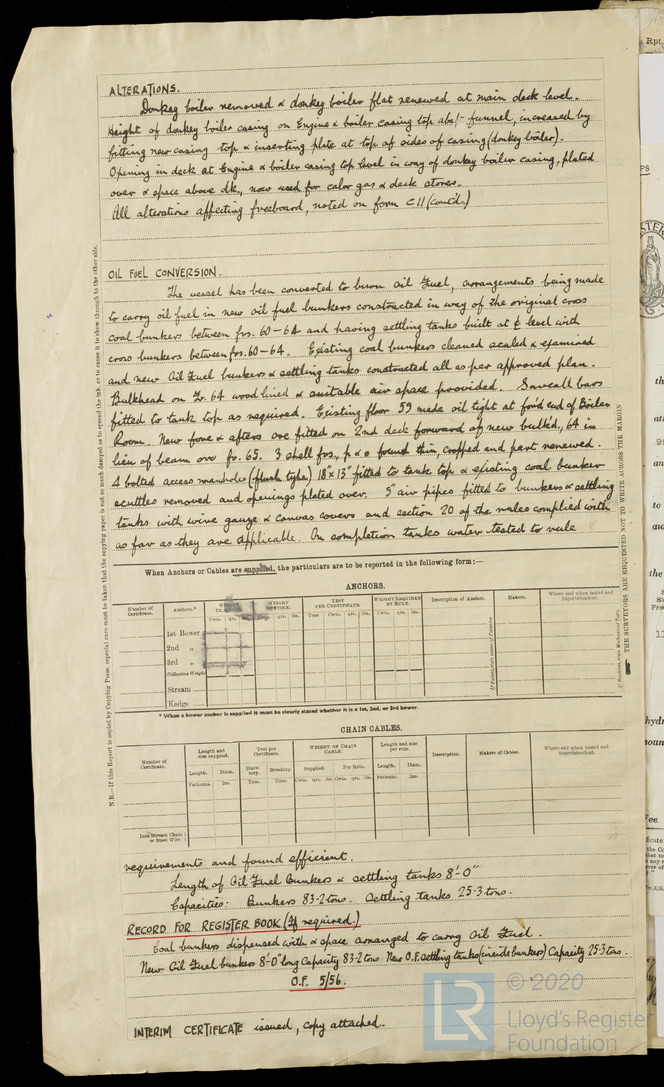 ALTERATIONS.
Donkey boiler removed & donkey boiler flat renewed at main deck level.
Height of donkey boiler casing on Engine & boiler casing top abaft funnel, increased by
fitting new casing top & inserting plate at top of sides of casing (donkey boiler).
Opening in deck at Engine & boiler casing top level in way of donkey boiler casing, plated
over & space above dk, now used for calor gas & deck stores.
All alterations affecting freeboard, noted on form C11 (contd.)
OIL FUEL CONVERSION.
The vessel has been converted to burn Oil Fuel, arrangements being made
to carry oil fuel in new oil fuel bunkers constructed in way of the original cross
coal bunkers between frs. 60-64 and having settling tanks built at ₵ level with
cross bunkers between frs. 60-64. Existing coal bunkers cleaned scaled & examined
and new Oil Fuel bunkers & settling tanks constructed all as per approved plan.
Bulkhead on Fr. 64 wood lined & suitable air space provided. Saveall bars
fitted to tank top as required. Existing floor 59 made oil tight at for'd end of Boiler
Room. New fore & afters are fitted on 2nd deck forward of new bulk'd, 64 in
lieu of beam on fr. 65. 3 shell frs., p & s found thin, cropped and part renewed.
4 bolted access manholes (flush type) 18" x 13" fitted to tank top & existing coal bunker
scuttles removed and openings plated over. 5" air pipes fitted to bunkers & settling
tanks with wire gauze & canvas covers and section 20 of the rules complied with
as far as they are applicable. On completion tanks water tested to rule
When Anchors or Cables are supplied, the particulars are to be reported in the following form:—
ANCHORS.
Number of Certificate. Anchors.* WEIGHT STOCK. TEST PER CERTIFICATE. WEIGHT REQUIRED BY RULE. Description of Anchor. Makers. Where and when tested and Superintendent.
Cwts. qrs. lbs. Tons Cwts. qrs. lbs. Cwts. qrs. lbs.
1st Bower
2nd "
3rd "
Collective Weight
Stream
Kedge
* When a bower anchor is supplied it must be clearly stated whether it is a 1st, 2nd, or 3rd bower.
CHAIN CABLES.
Number of Certificate. Length and size supplied. Test per Certificate. WEIGHT OF CHAIN CABLE. Length and size per rule. Description. Makers of Cables. Where and when tested and Superintendent.
Length. Diam. Statutory. Breaking. Supplied. Per Rule. Length. Diam.
Fathoms. Ins. Tons. Tons. Cwts. qrs. lbs. Cwts. qrs. lbs. Fathoms. Ins.
Iron Stream Chain or Steel Wire
requirements and found efficient.
Length of Oil Fuel Bunkers & settling tanks 8'-0"
Capacities: Bunkers 83.2 tons. Settling tanks 25.3 tons.
RECORD FOR REGISTER BOOK (If required.)
Coal bunkers dispensed with & space arranged to carry Oil Fuel.
New Oil Fuel bunkers 8'-0" long Capacity 83.2 tons New O.F. settling tanks (inside bunkers) Capacity 25.3 tons.
O.F. 5/56.
INTERIM CERTIFICATE issued, copy attached.
N.B.—If this Report is copied by Copying Press, especial care must be taken that the copying paper is not so much damped as to spread the ink, or to cause it to show through to the other side.
THE SURVEYORS ARE REQUESTED NOT TO WRITE ACROSS THE MARGIN
Rpt.
© 2020
LR
Lloyd's Register
Foundation